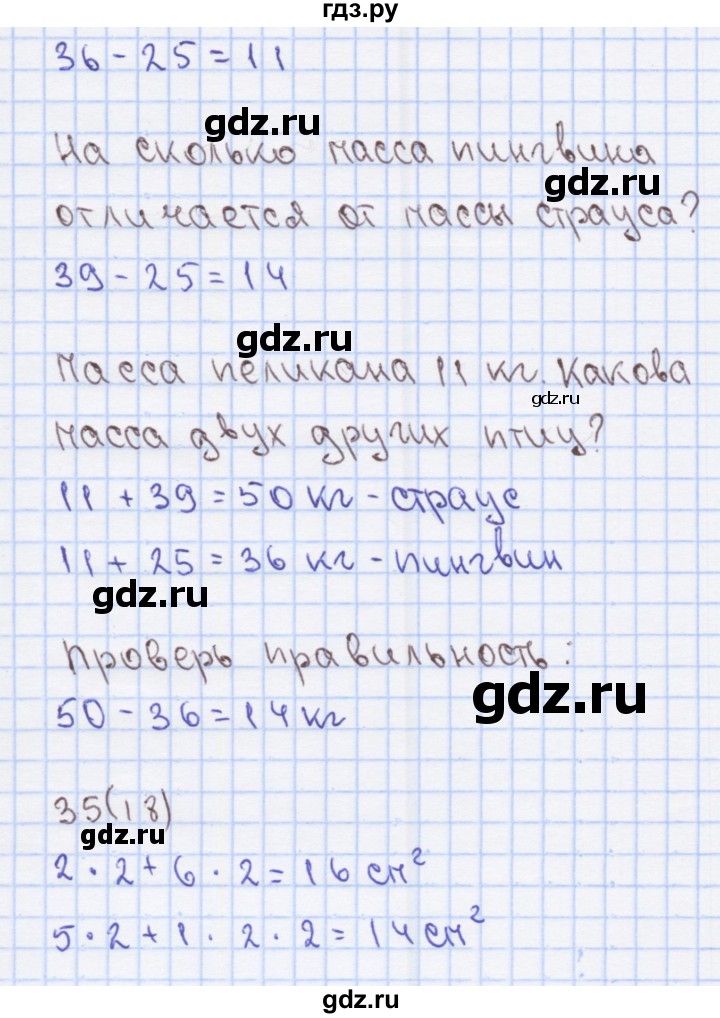 гдз.ру
36 - 25 = 11
gdz.ru
На сколько масса пингвина
gdz.ru
отличается от массы страуса?
39 - 25 = 14
gdz.ru
Масса пеликана 11 кг. Какова
gdz.ru
масса двух других птиц?
11 + 39 = 50 кг - страус
11 + 25 = 36 кг - пингвин
gdz.ru
Проверь правильность:
gdz.ru
50 - 36 = 14 кг
35(18)
gdz.ru
2 · 2 + 6 · 2 = 16 см²
5 · 2 + 1 · 2 · 2 = 14 см²
gdz.ru